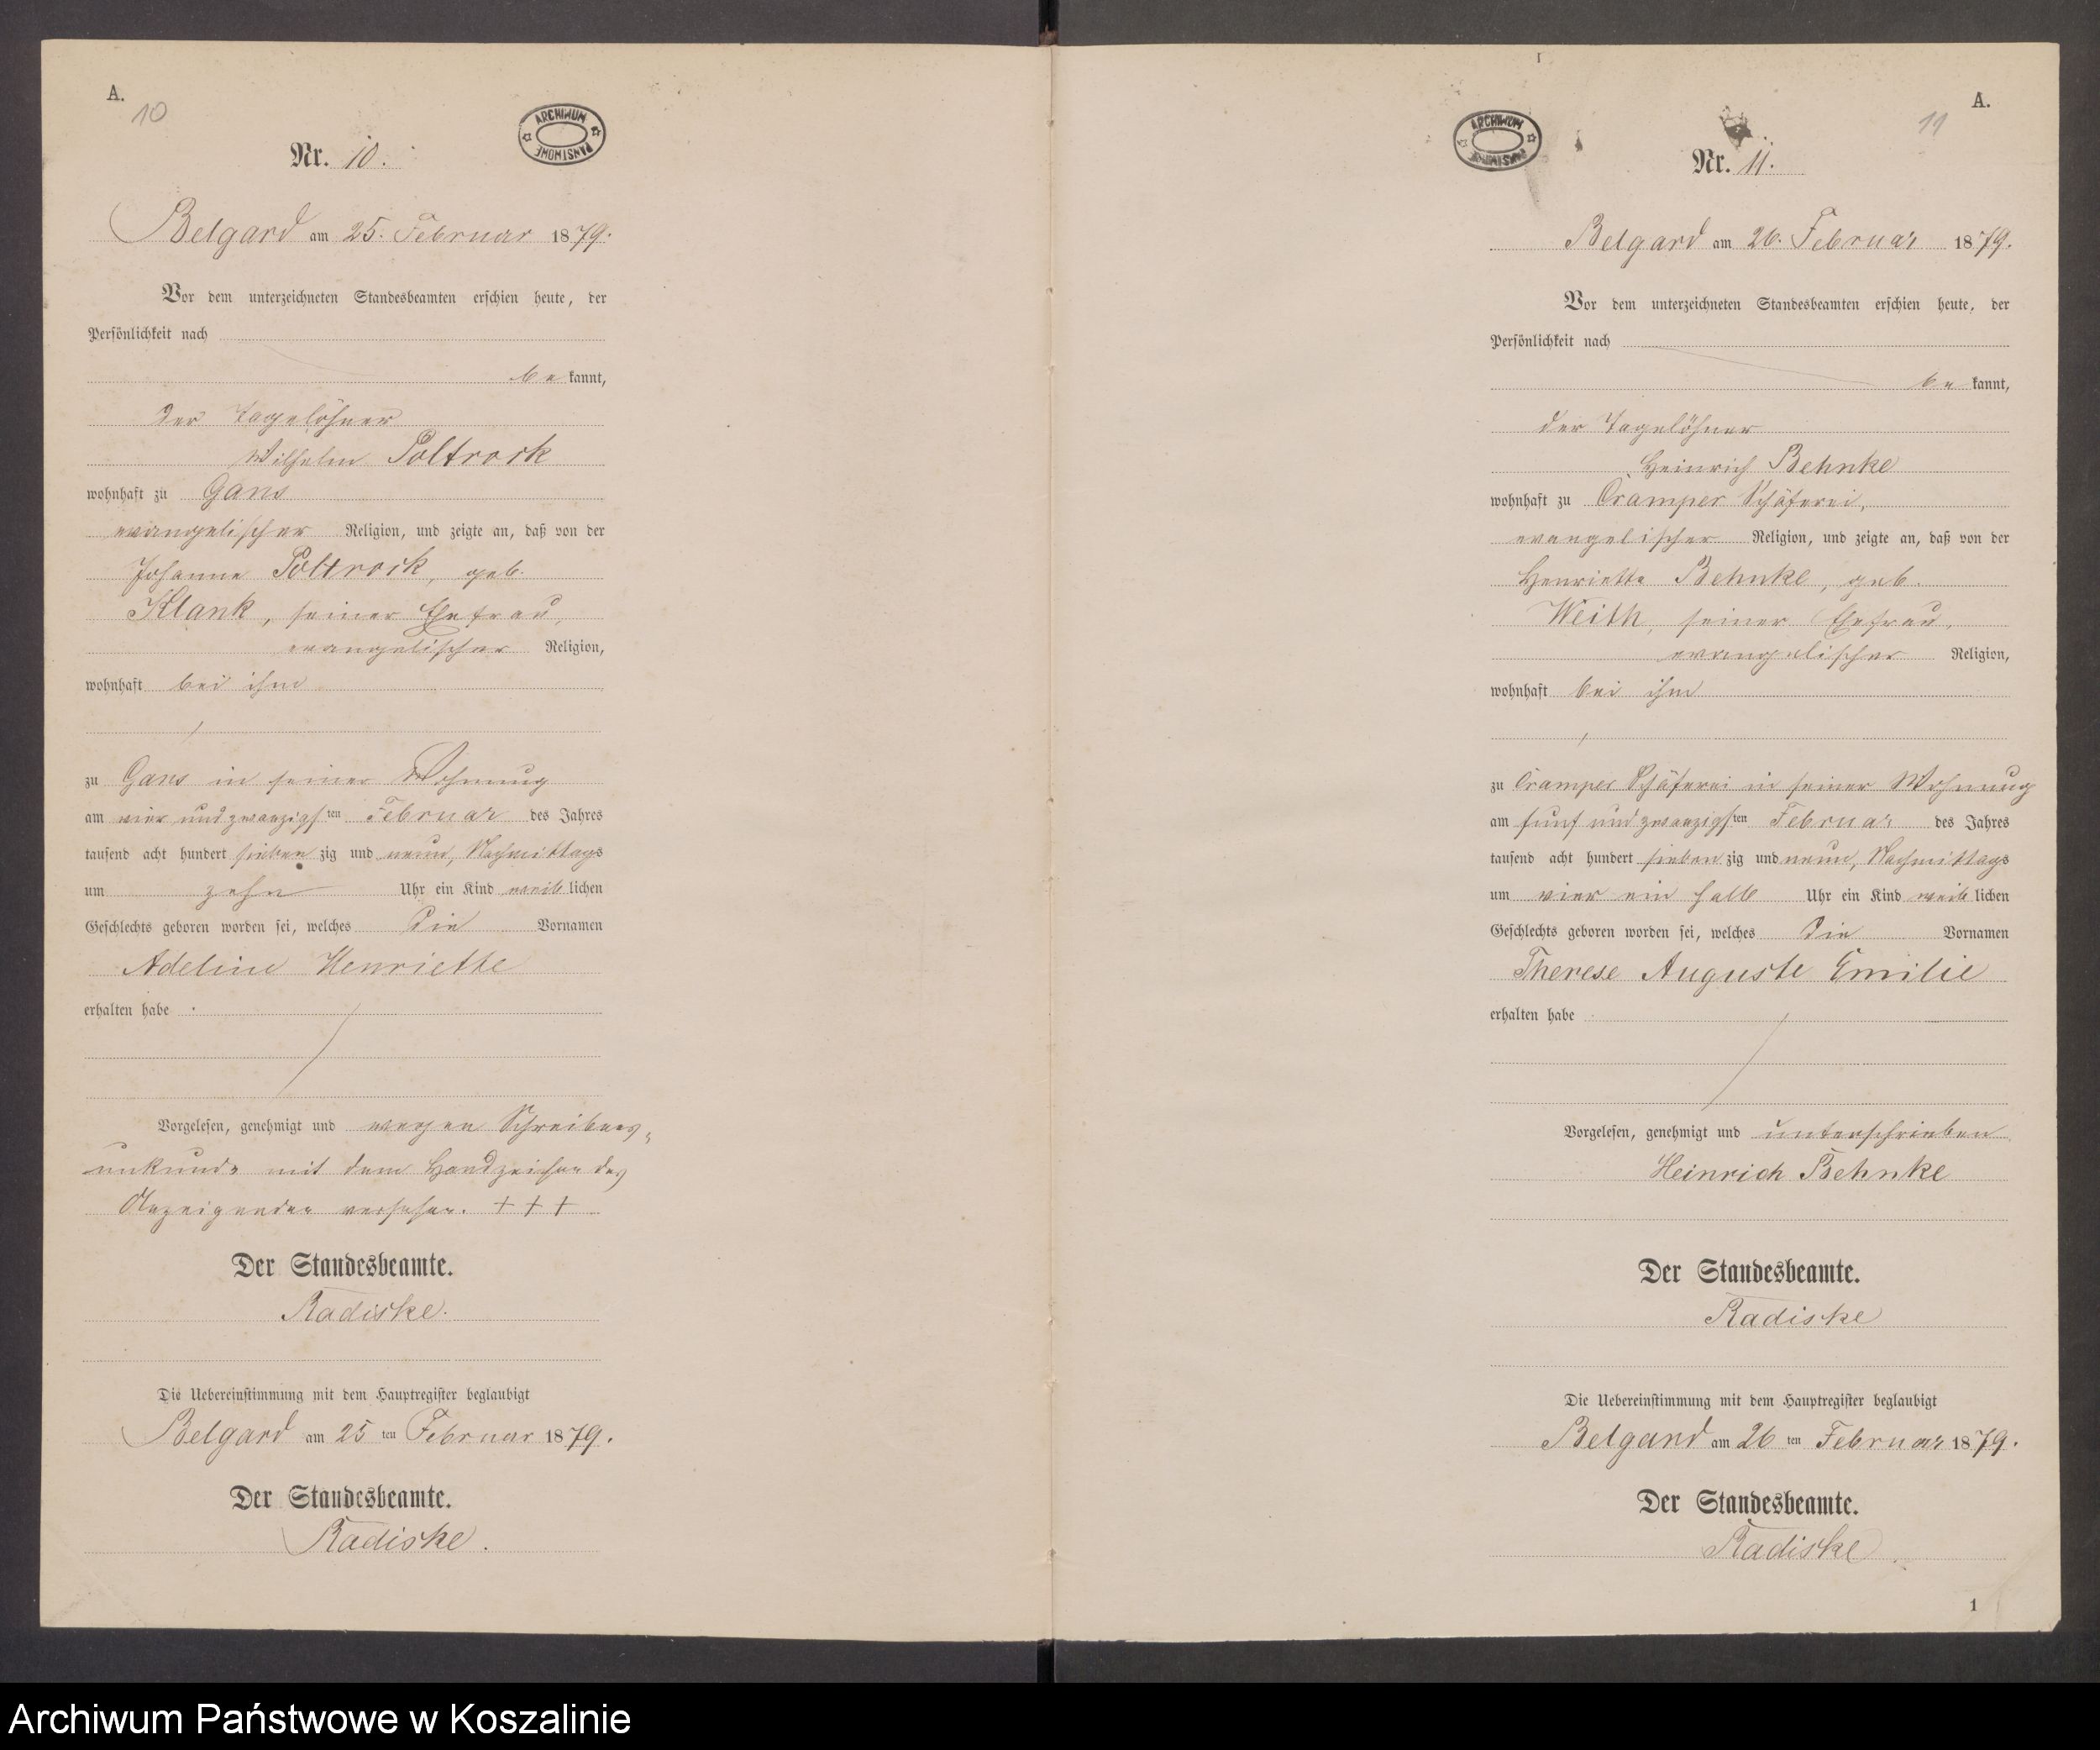 A.
10
Nr. 10.
ARCHIWUM
PAŃSTWOWE
Belgard am 25. Februar 1879.
Vor dem unterzeichneten Standesbeamten erschien heute, der
Persönlichkeit nach
be kannt,
der Tagelöhner
Wilhelm Poltrock
wohnhaft zu Gans
evangelischer Religion, und zeigte an, daß von der
Johanne Poltrock, geb.
Klank, seiner Ehefrau,
evangelischer Religion,
wohnhaft bei ihm
zu Gans in seiner Wohnung
am vier und zwanzigsten Februar des Jahres
tausend acht hundert sieben zig und neun, Nachmittags
um zehn Uhr ein Kind weib lichen
Geschlechts geboren worden sei, welches die Vornamen
Adeline Henriette
erhalten habe.
Vorgelesen, genehmigt und wegen Schreibens-
unkunde mit dem Handzeichen des
Anzeigenden versehen. + + +
Der Standesbeamte.
Radiske.
Die Uebereinstimmung mit dem Hauptregister beglaubigt
Belgard am 25 ten Februar 1879.
Der Standesbeamte.
Radiske.
A.
11
ARCHIWUM
PAŃSTWOWE
Nr. 11.
Belgard am 26. Februar 1879.
Vor dem unterzeichneten Standesbeamten erschien heute, der
Persönlichkeit nach
be kannt,
der Tagelöhner
Heinrich Behnke
wohnhaft zu Cramper Schäferei,
evangelischer Religion, und zeigte an, daß von der
Henriette Behnke, geb.
Weith, seiner Ehefrau,
evangelischer Religion,
wohnhaft bei ihm
zu Cramper Schäferei in seiner Wohnung
am fünf und zwanzigsten Februar des Jahres
tausend acht hundert sieben zig und neun, Nachmittags
um vier ein halb Uhr ein Kind weib lichen
Geschlechts geboren worden sei, welches die Vornamen
Therese Auguste Emilie
erhalten habe
Vorgelesen, genehmigt und unterschrieben
Heinrich Behnke
Der Standesbeamte.
Radiske
Die Uebereinstimmung mit dem Hauptregister beglaubigt
Belgard am 26 ten Februar 1879.
Der Standesbeamte.
Radiske
1
Archiwum Państwowe w Koszalinie